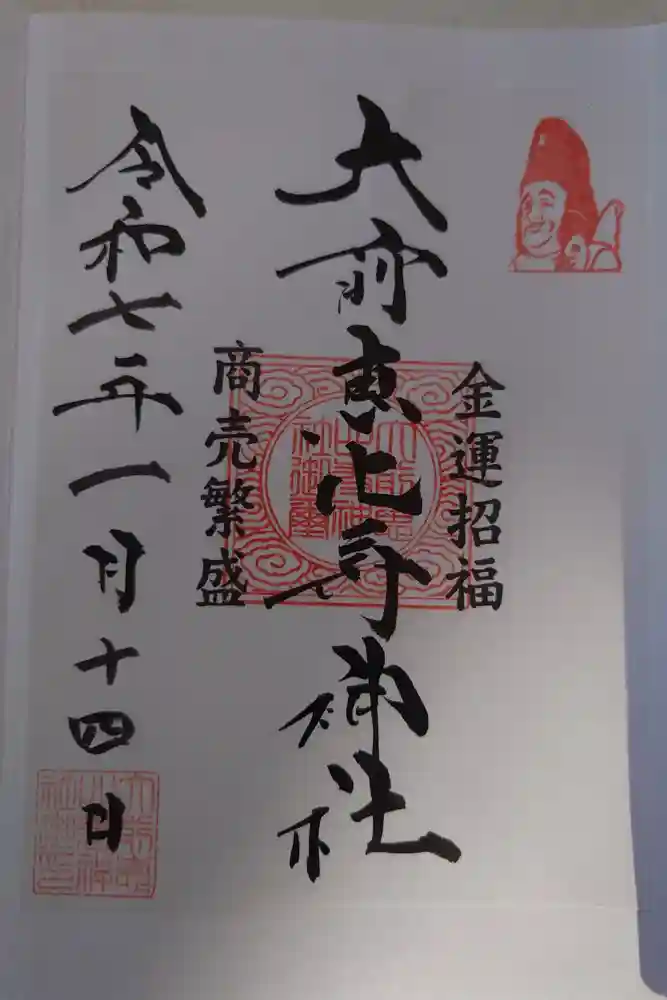 金運招福
大前恵比寿神社
商売繁盛
令和七年一月十四日